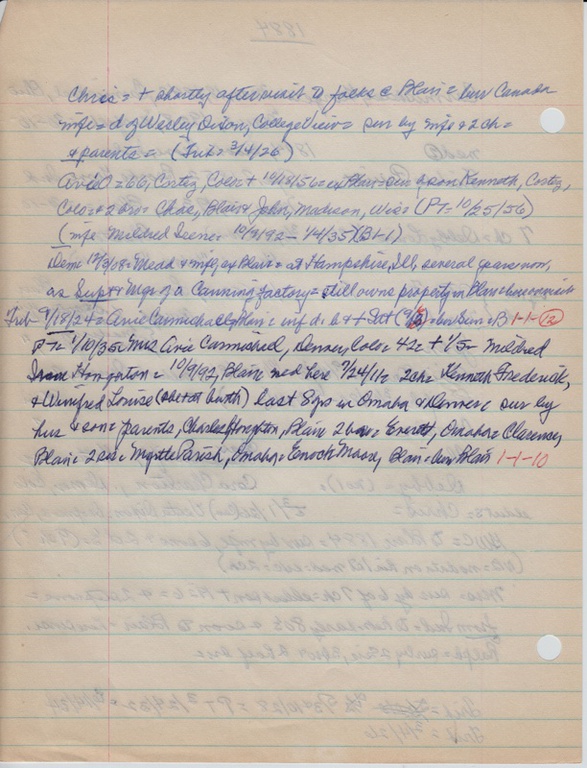 Chris = + shortly after visit to folks @ Blair = bur Canada
wife = d of Wesley Dixon, College View = sur by wife & 2 ch =
& parents = (Trib = 3/14/26)
= 66, Cortez, Colo + 10/18/56 = Blair = sur by son Kenneth, Cortez,
Colo + 2 bro = Chas, Blair & John, Madison, Wis = (PT = 10/25/56)
(wife Mildred Irene = 10/9/92 - 1/4/35)
Dem 12/3/08 = Mead & wife ex Blair = at Hampshire, Ill, several years now,
as Supt & Mgr of a Canning factory = still owns property in Blair = here on visit
Trib 9/18/24 = Carmichael, Blair = inf d b & = bur B 1-1-12
PT = 1/10/35 = Mrs Carmichael, Denver, Colo = 42 = + 1/5 = Mildred
Irene Houghton = 10/9/92, Blair = mcd here 7/24/11 = 2 ch = Kenneth Frederick,
& Winifred Louise (she + at birth) last 8 yrs in Omaha & Denver = sur by
hus & son = parents, Charles Houghton, Blair 2 bro = Everett, Omaha = Clarence,
Blair = 2 sis = Myrtle Parish, Omaha = Enoch Moore, Blair = bur Blair 1-1-10